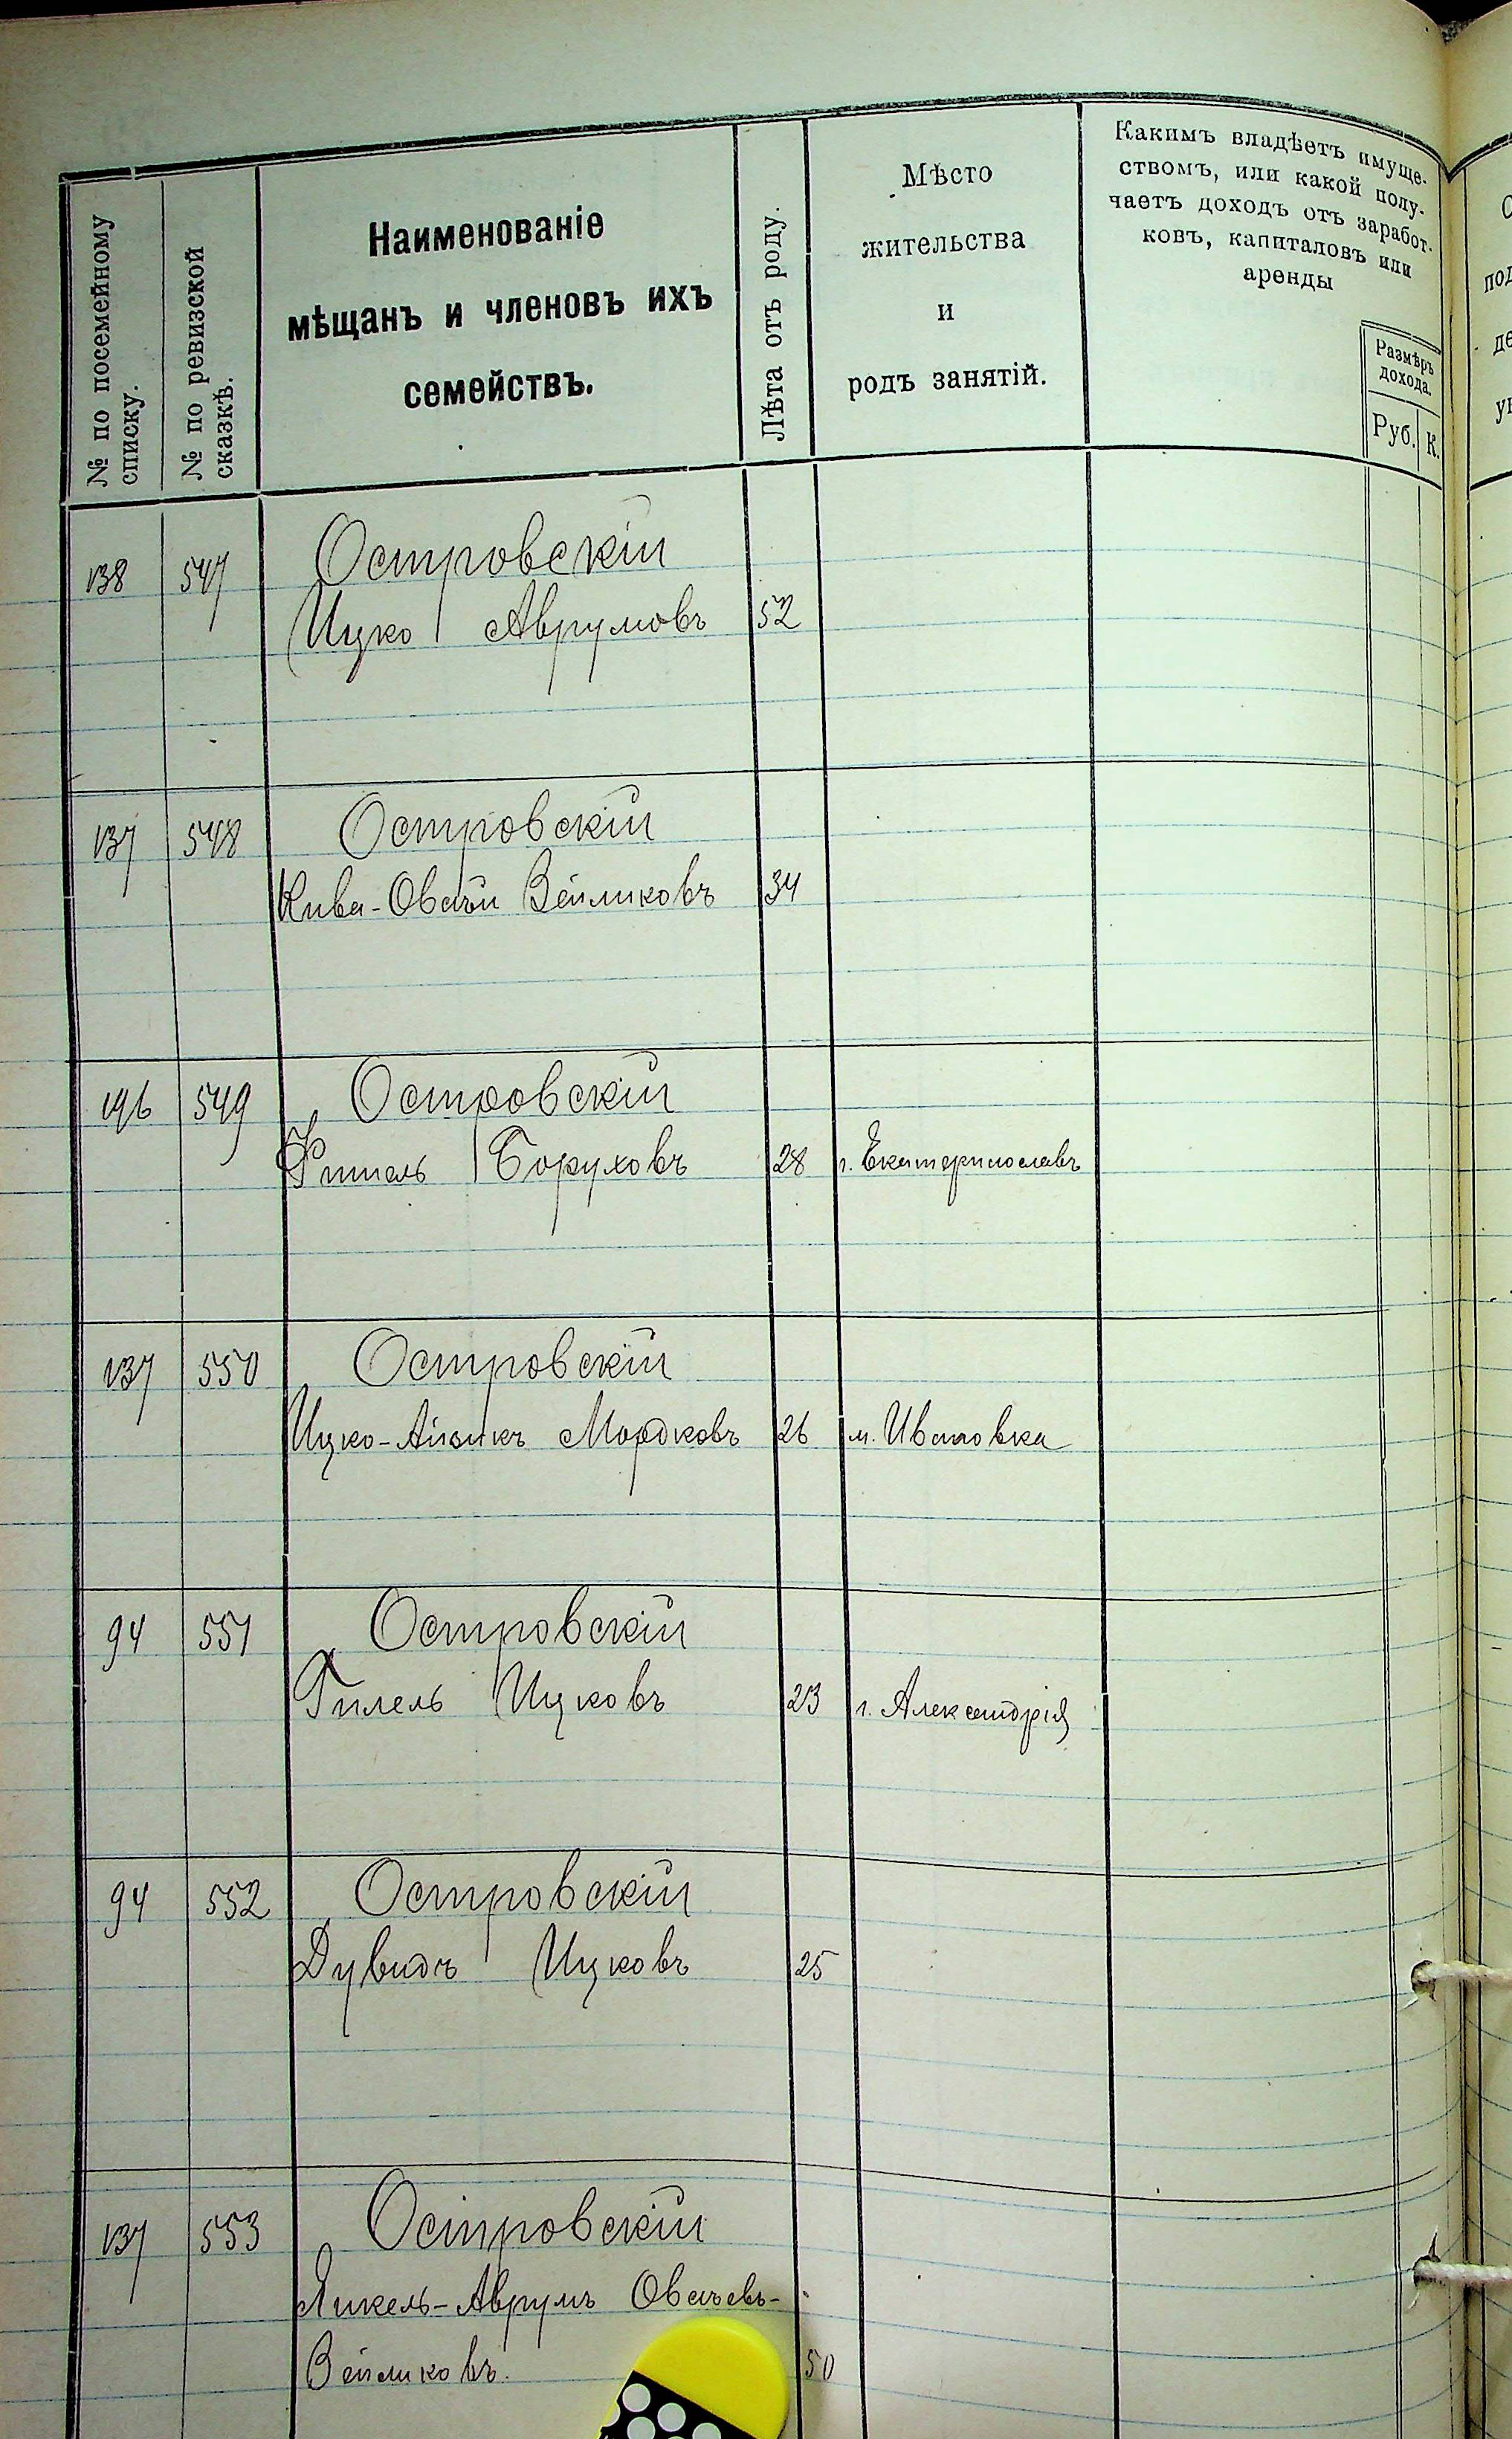 № по посемейному
списку.
№ по ревизской
сказкѣ.
Наименованіе
мѣщанъ и членовъ ихъ
семействъ.
Лѣта отъ роду.
Мѣсто
жительства
и
родъ занятій.
Какимъ владѣетъ имуще-
ствомъ, или какой полу-
чаетъ доходъ отъ заработ-
ковъ, капиталовъ или
аренды
Размѣръ
дохода.
Руб. К.
138 547 Островскій
Ицко Аврумовъ 52
137 548 Островскій
Кива-Овсѣй Вейликовъ 34
196 549 Островскій
Фишель Боруховъ 28 г. Екатеринославъ
137 550 Островскій
Ицко-Айзикъ Мордковъ 26 м. Ивановка
94 551 Островскій
Гилель Ицковъ 23 г. Александрія
94 552 Островскій
Дувидъ Ицковъ 25
137 553 Островскій
Янкель-Аврумъ Овсѣевъ-
Вейликовъ. 50